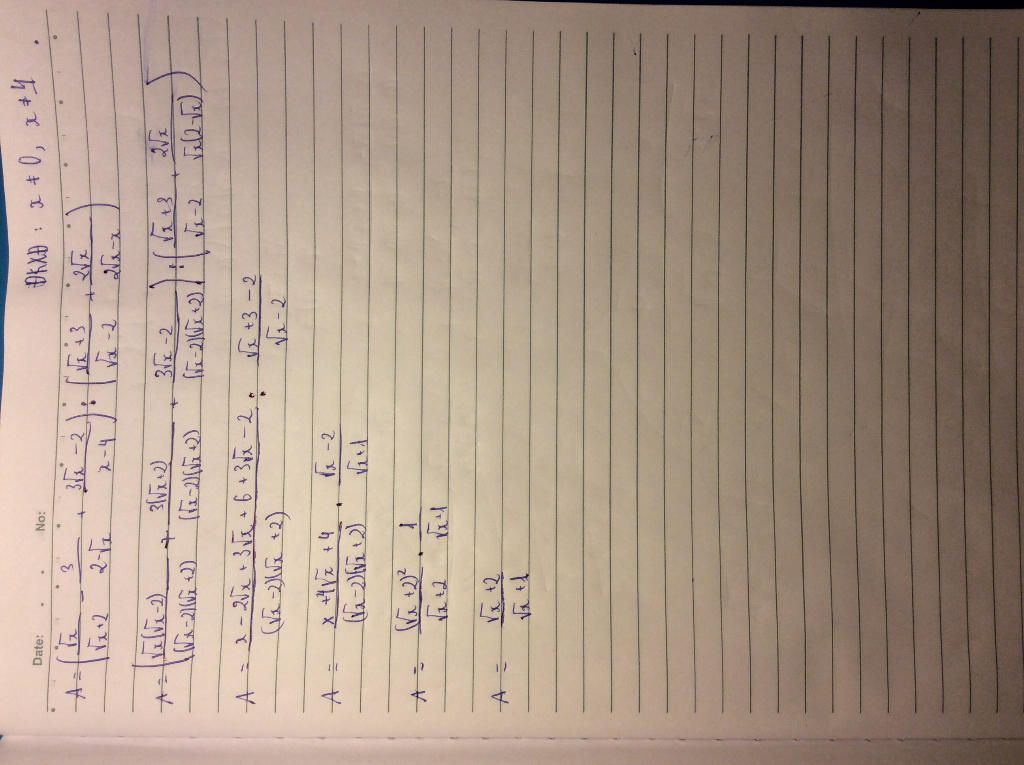 Date: No:
ĐKXĐ : x ≠ 0, x ≠ 4
A = (√x/(√x+2) - 3/(2-√x) + (3√x-2)/(x-4)) : ((√x+3)/(√x-2) + 2√x/(2√x-x))
A = (√x(√x-2)/((√x-2)(√x+2)) + 3(√x+2)/((√x-2)(√x+2)) + (3√x-2)/((√x-2)(√x+2))) : ((√x+3)/(√x-2) + 2√x/(√x(2-√x)))
A = (x-2√x+3√x+6+3√x-2)/((√x-2)(√x+2)) : (√x+3-2)/(√x-2)
A = (x+4√x+4)/((√x-2)(√x+2)) . (√x-2)/(√x+1)
A = (√x+2)²/(√x+2) . 1/(√x+1)
A = (√x+2)/(√x+1)